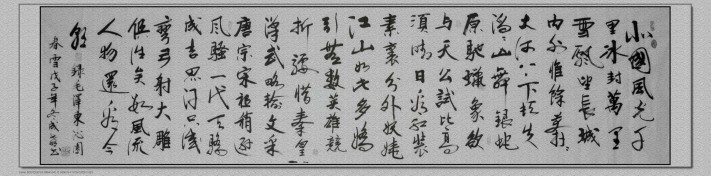 北國風光千
里冰封萬里
雪飄望長城
內外惟餘莽莽
大河上下頓失
滔滔山舞銀蛇
原馳蠟象欲
與天公試比高
須晴日看紅裝
素裹分外妖嬈
江山如此多嬌
引無數英雄競
折腰惜秦皇
漢武略輸文采
唐宗宋祖稍遜
風騷一代天驕
成吉思汗只識
彎弓射大雕
俱往矣數風流
人物還看今
朝
錄毛澤東沁園
春雪戊子年冬成